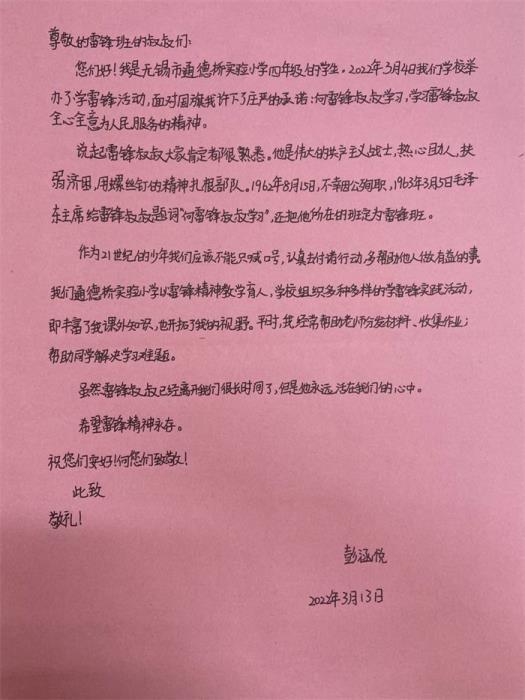 尊敬的雷锋班的叔叔们：
您们好！我是无锡市通德桥实验小学四年级的学生，2022年3月4日我们学校举
办了学雷锋活动，面对国旗我许下了庄严的承诺：向雷锋叔叔学习，学习雷锋叔叔
全心全意为人民服务的精神。
说起雷锋叔叔大家肯定都很熟悉。他是伟大的共产主义战士，热心助人，扶
弱济困，用螺丝钉的精神扎根部队。1962年8月15日，不幸因公殉职，1963年3月5日毛泽
东主席给雷锋叔叔题词“向雷锋叔叔学习”，还把他所在的班定为雷锋班。
作为21世纪的少年我们应该不能只喊口号，认真去付诸行动，多帮助他人做有益的事。
我们通德桥实验小学以雷锋精神教学育人，学校组织多种多样的学雷锋实践活动，
即丰富了我课外知识，也开拓了我的视野。平时，我经常帮助老师分发材料、收集作业；
帮助同学解决学习难题。
虽然雷锋叔叔已经离开我们很长时间了，但是他永远活在我们的心中。
希望雷锋精神永存。
祝您们安好！向您们致敬！
此致
敬礼！
彭涵悦
2022年3月13日